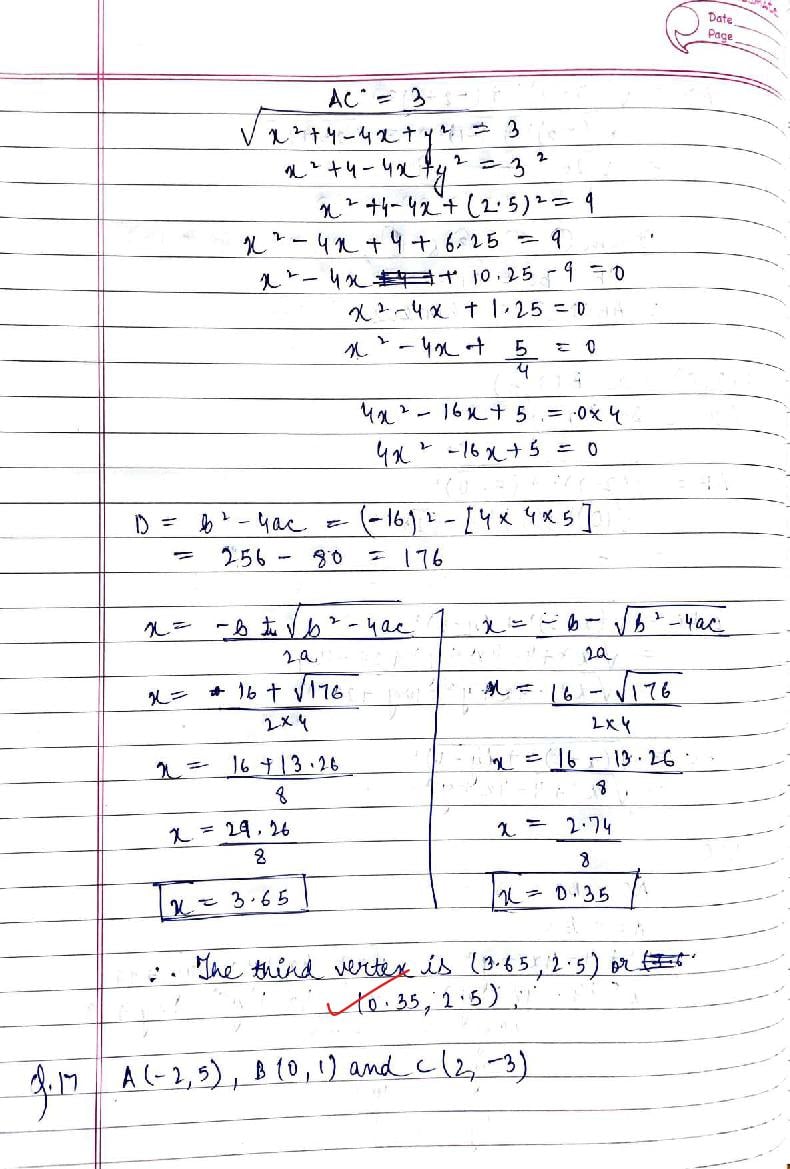 Date
Page
AC = 3
√x²+4-4x+y² = 3
x²+4-4x+y² = 3²
x²+4-4x+(2.5)² = 9
x²-4x+4+6.25 = 9
x²-4x + 10.25-9 = 0
x²-4x+1.25 = 0
x²-4x+5/4 = 0
4x²-16x+5 = 0×4
4x²-16x+5 = 0
D = b²-4ac = (-16)²-[4×4×5]
= 256-80 = 176
x = -b ± √b²-4ac / 2a
x = 16+√176 / 2×4
x = 16+13.26 / 8
x = 29.26 / 8
x = 3.65
x = -b-√b²-4ac / 2a
x = 16-√176 / 2×4
x = 16-13.26 / 8
x = 2.74 / 8
x = 0.35
∴ The third vertex is (3.65, 2.5) or
(0.35, 2.5).
Q.17 A(-2,5), B(0,1) and C(2,-3)